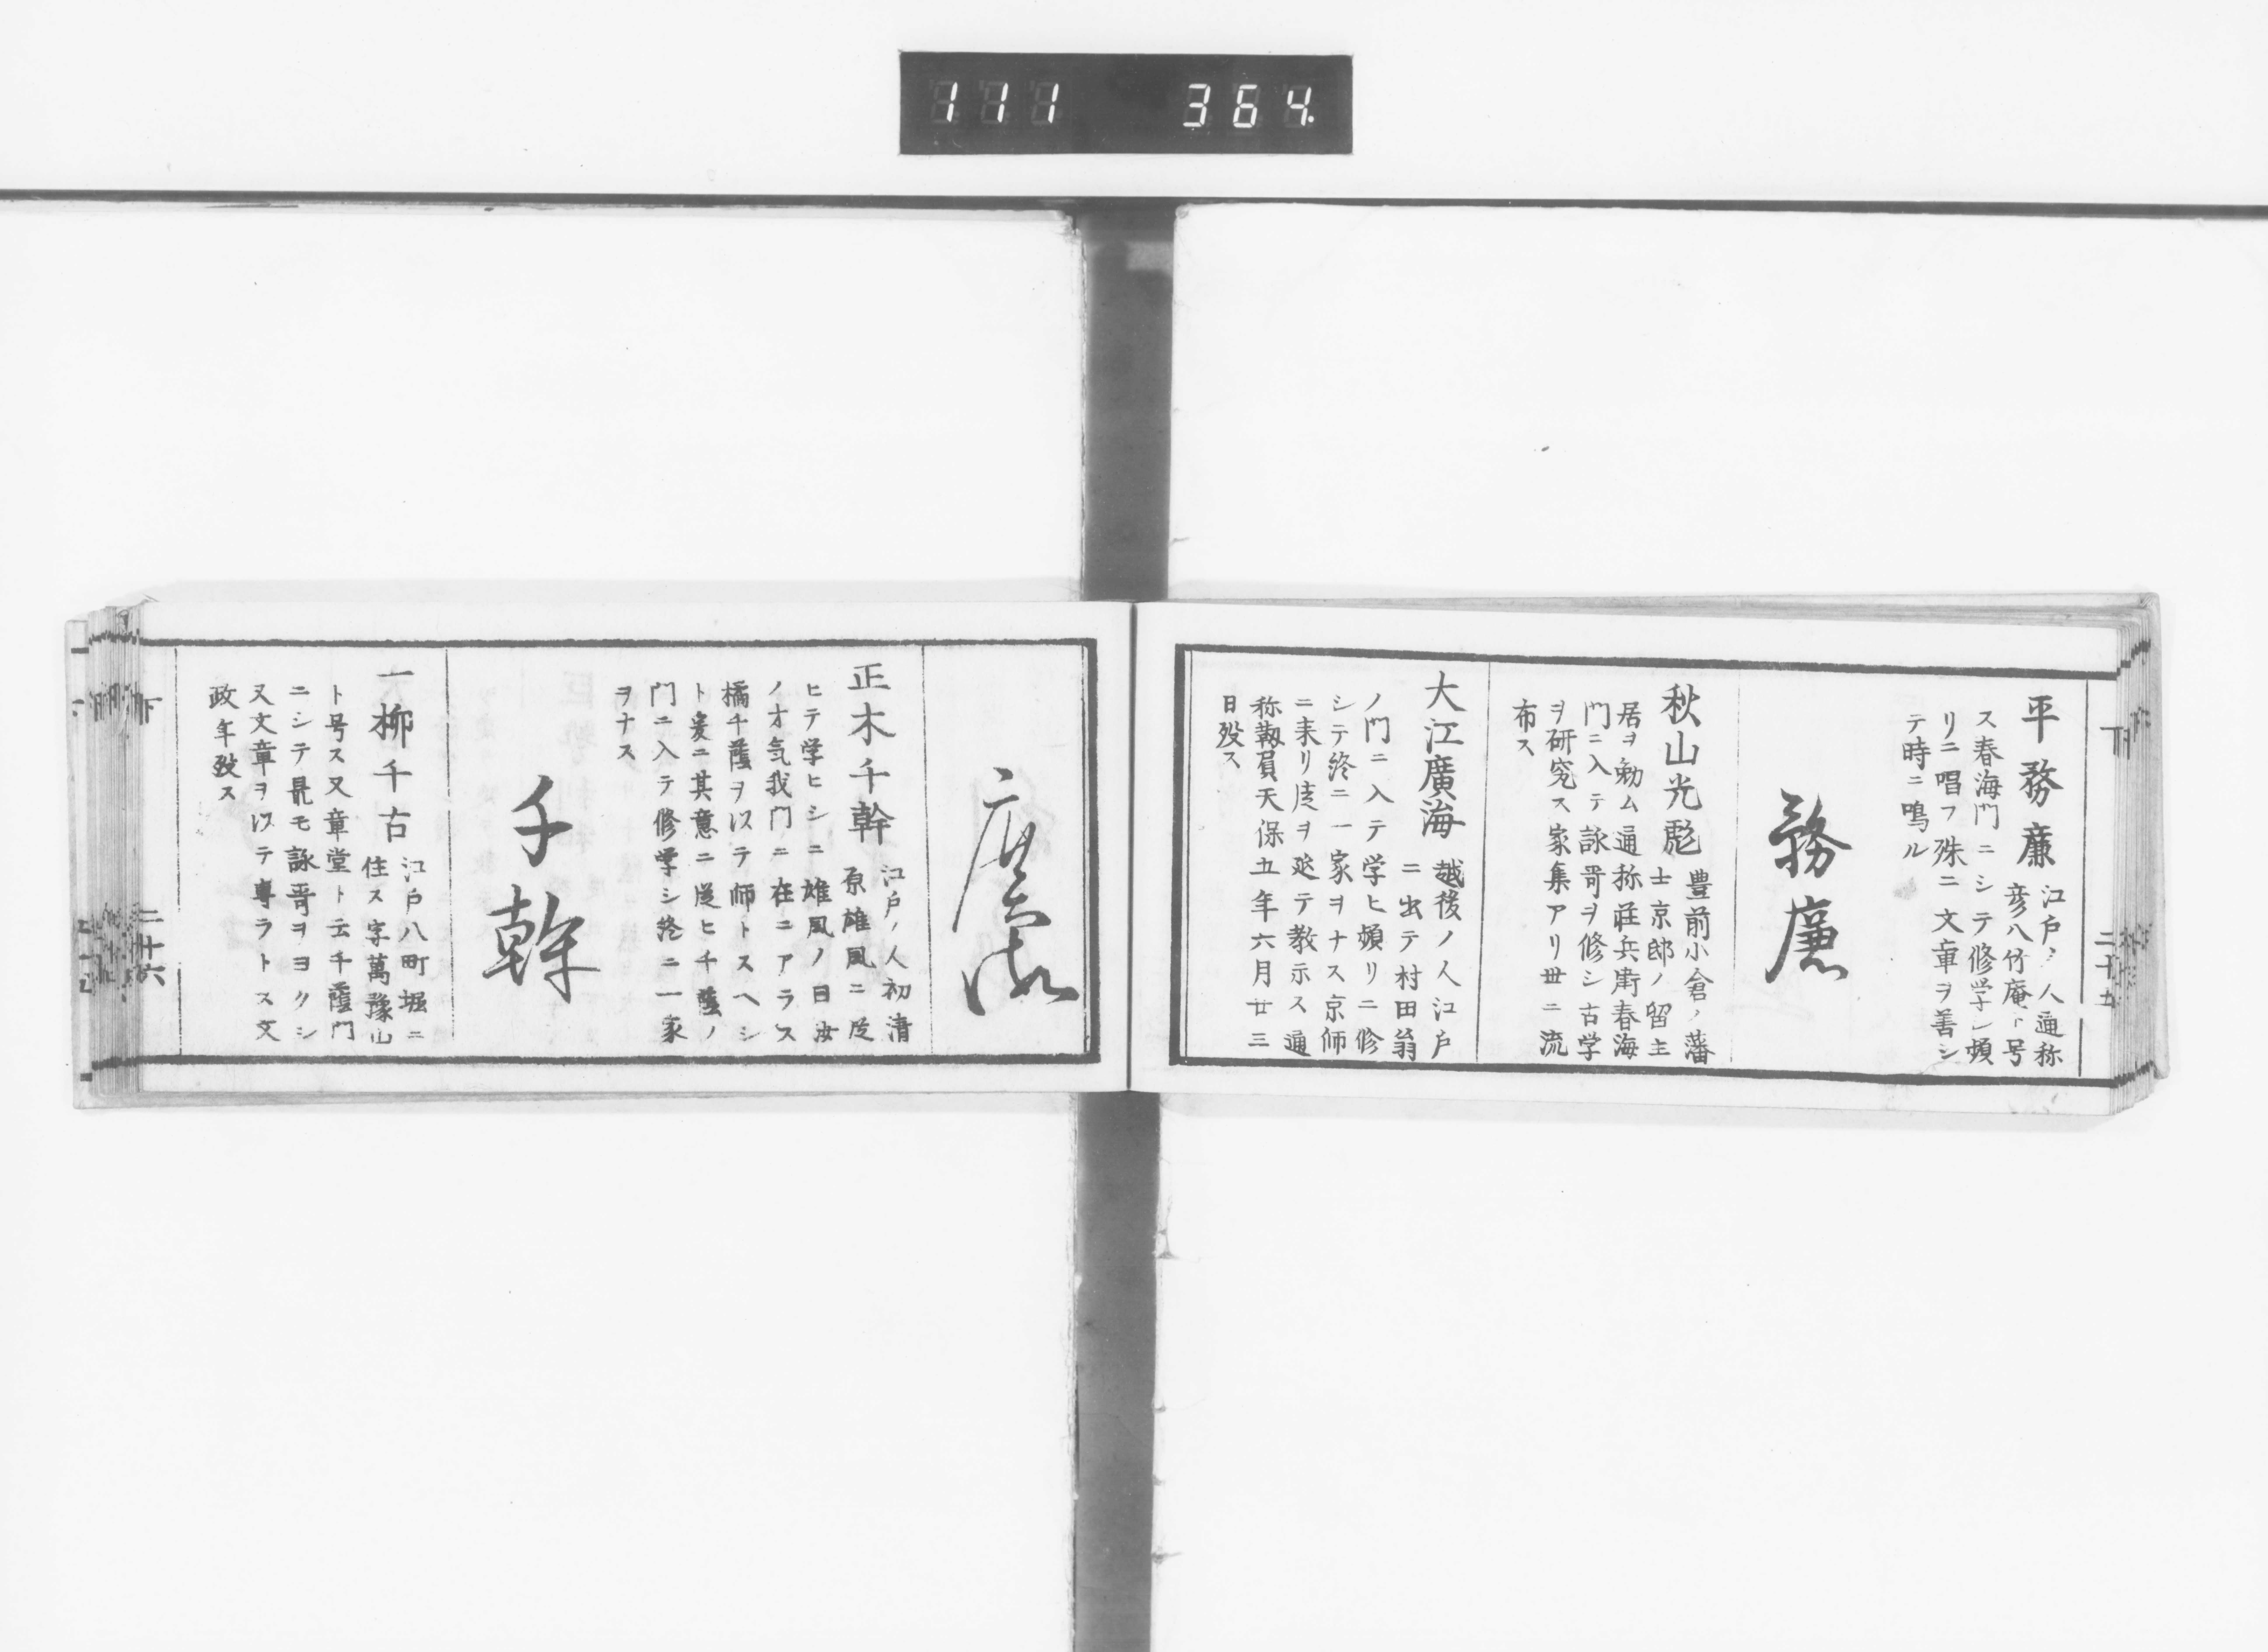 111 364.
下
二十五
平務廉 江戸ノ人通称
彦八竹庵ト号
ス春海門ニシテ修学シ頻
リニ唱フ殊ニ文章ヲ善シ
テ時ニ鳴ル
務廉
秋山光彪 豊前小倉ノ藩
士京邸ノ留主
居ヲ勤ム通称荘兵衛春海
門ニ入テ詠哥ヲ修シ古学
ヲ研究ス家集アリ世ニ流
布ス
大江廣海 越後ノ人江戸
ニ出テ村田翁
ノ門ニ入テ学ヒ頻リニ修
シテ終ニ一家ヲナス京師
ニ来リ帷ヲ延テ教示ス通
称靱負天保五年六月廿三
日殁ス
廣海
正木千幹 江戸ノ人初清
原雄風ニ従
ヒテ学ヒシニ雄風ノ曰汝
ノ才気我門ニ在ニアラス
橘千蔭ヲ以テ師トスヘシ
ト爰ニ其意ニ従ヒ千蔭ノ
門ニ入テ修学シ終ニ一家
ヲナス
千幹
一柳千古 江戸八町堀ニ
住ス字萬豫山
ト号ス又章堂ト云千蔭門
ニシテ最モ詠哥ヲヨクシ
又文章ヲ以テ専ラトス文
政年殁ス
下
二十六